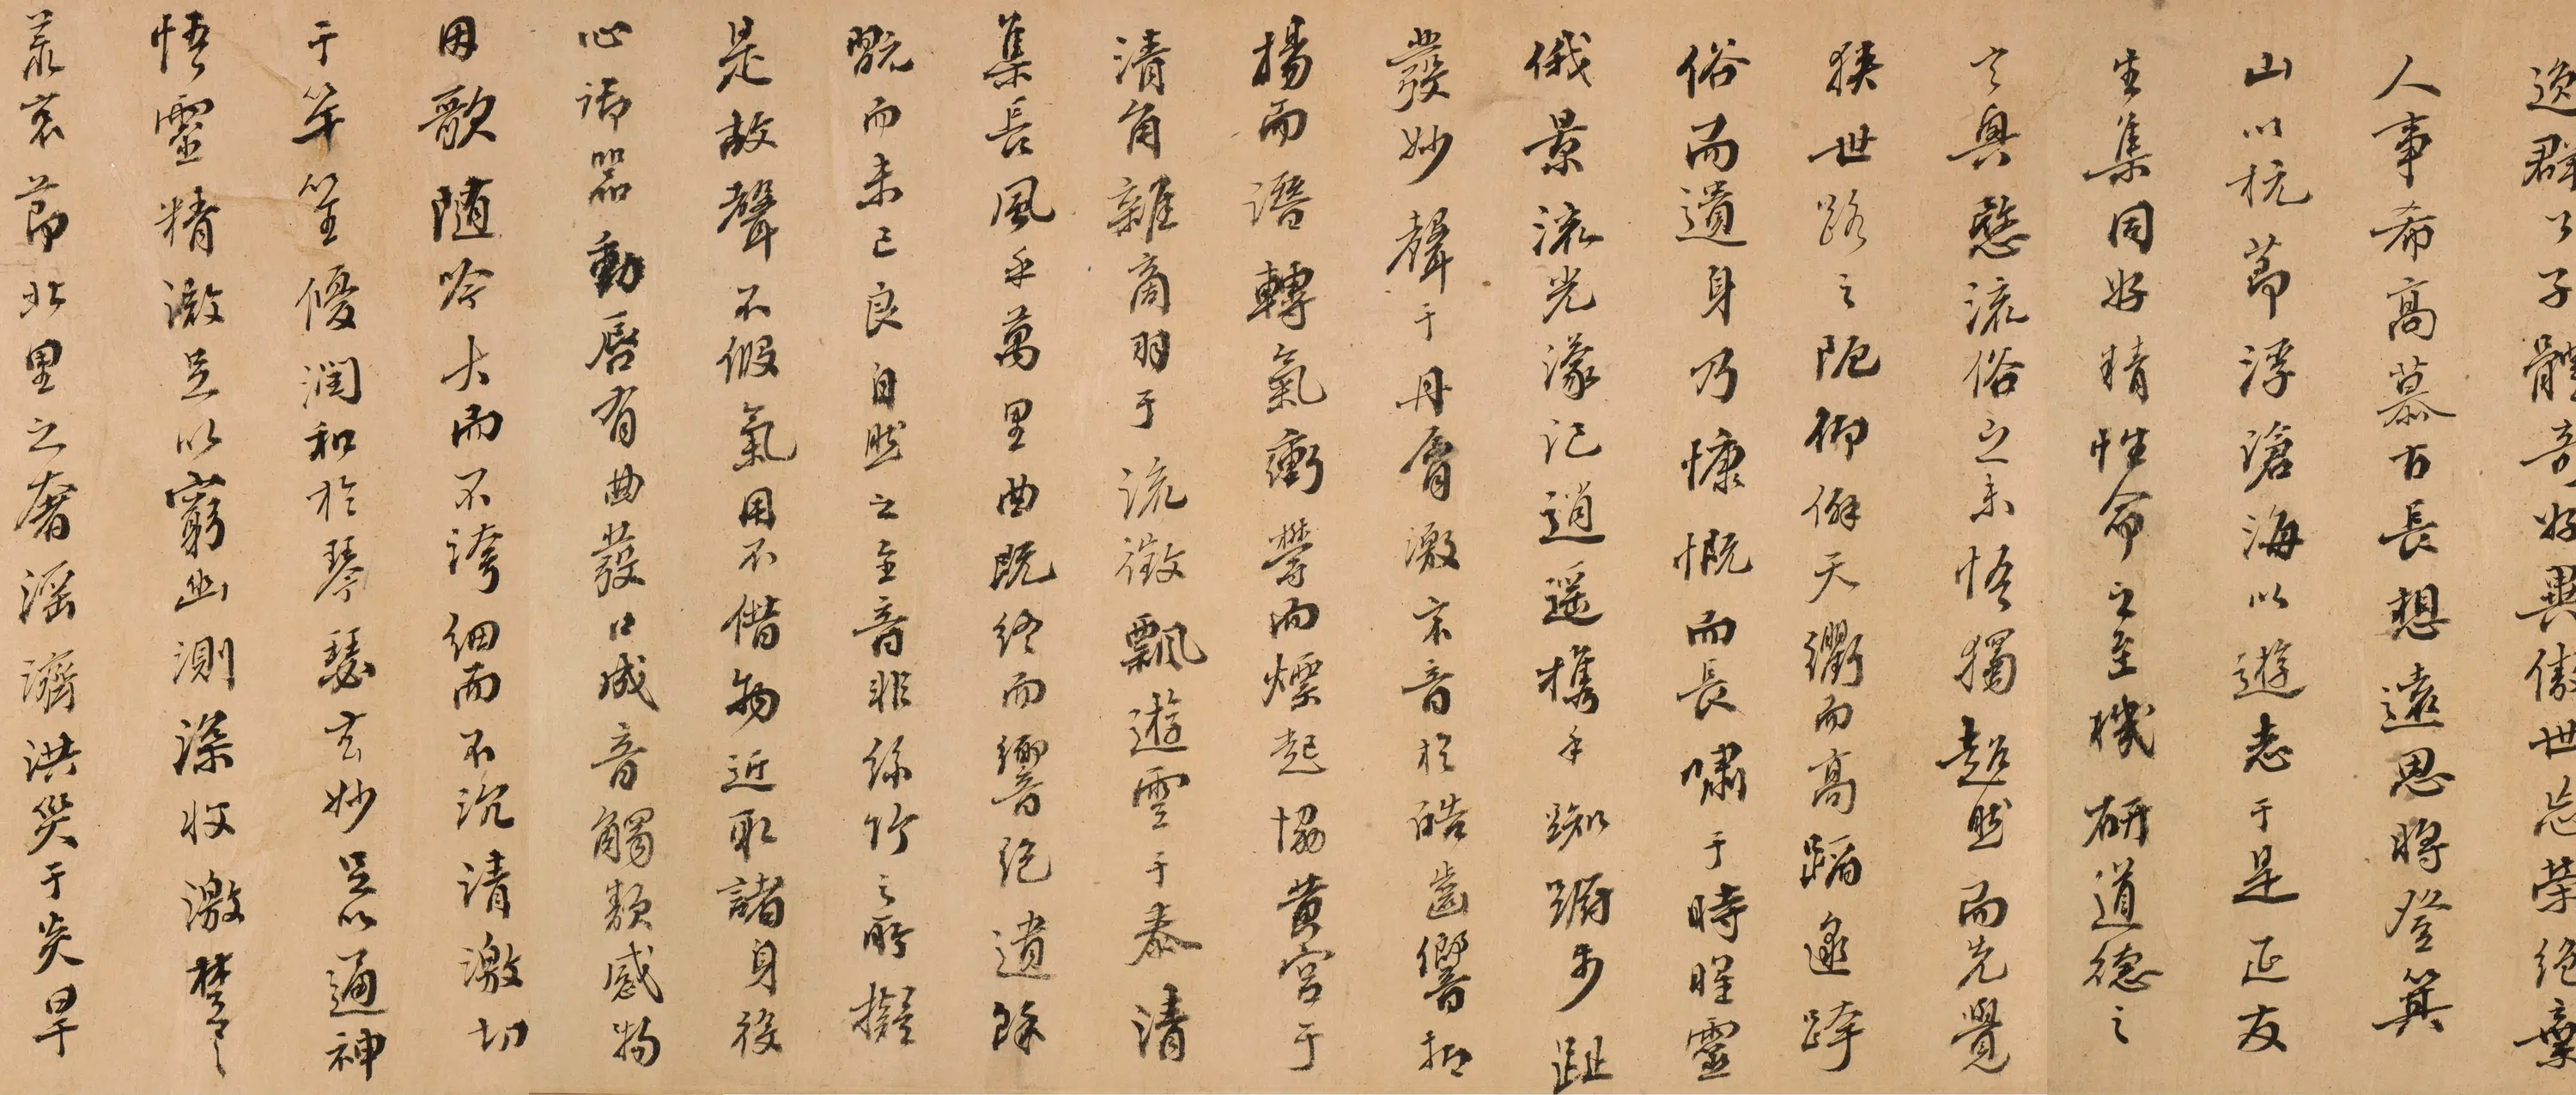 逸群公子體奇好異傲世忘榮絕棄
人事希高慕古長想遠思將登箕
山以抗節浮滄海以遊志于是延友
生集同好精性命之至機研道德之
玄奧愍流俗之未悟獨超然而先覺
狹世路之阨仰僻天衢而高蹈邈跨
俗而遺身乃慷慨而長嘯于時曜靈
俄景流光濛汜逍遙攜手踟躕步趾
發妙聲于丹脣激哀音於皓齒響抑
揚而潛轉氣衝鬱而熛起協黃宮于
清角雜商羽于流徵飄遊雲于泰清
集長風乎萬里曲既終而響絕遺餘
翫而未已良自然之至音非絲竹之所擬
是故聲不假氣用不借物近取諸身役
心御器動脣有曲發口成音觸類感物
因歌隨吟大而不誇細而不沉清激切
于竽笙優潤和於琴瑟玄妙足以通神
悟靈精激足以窮幽測深收激楚之
荒哀節北里之奢淫濟洪災于炎旱